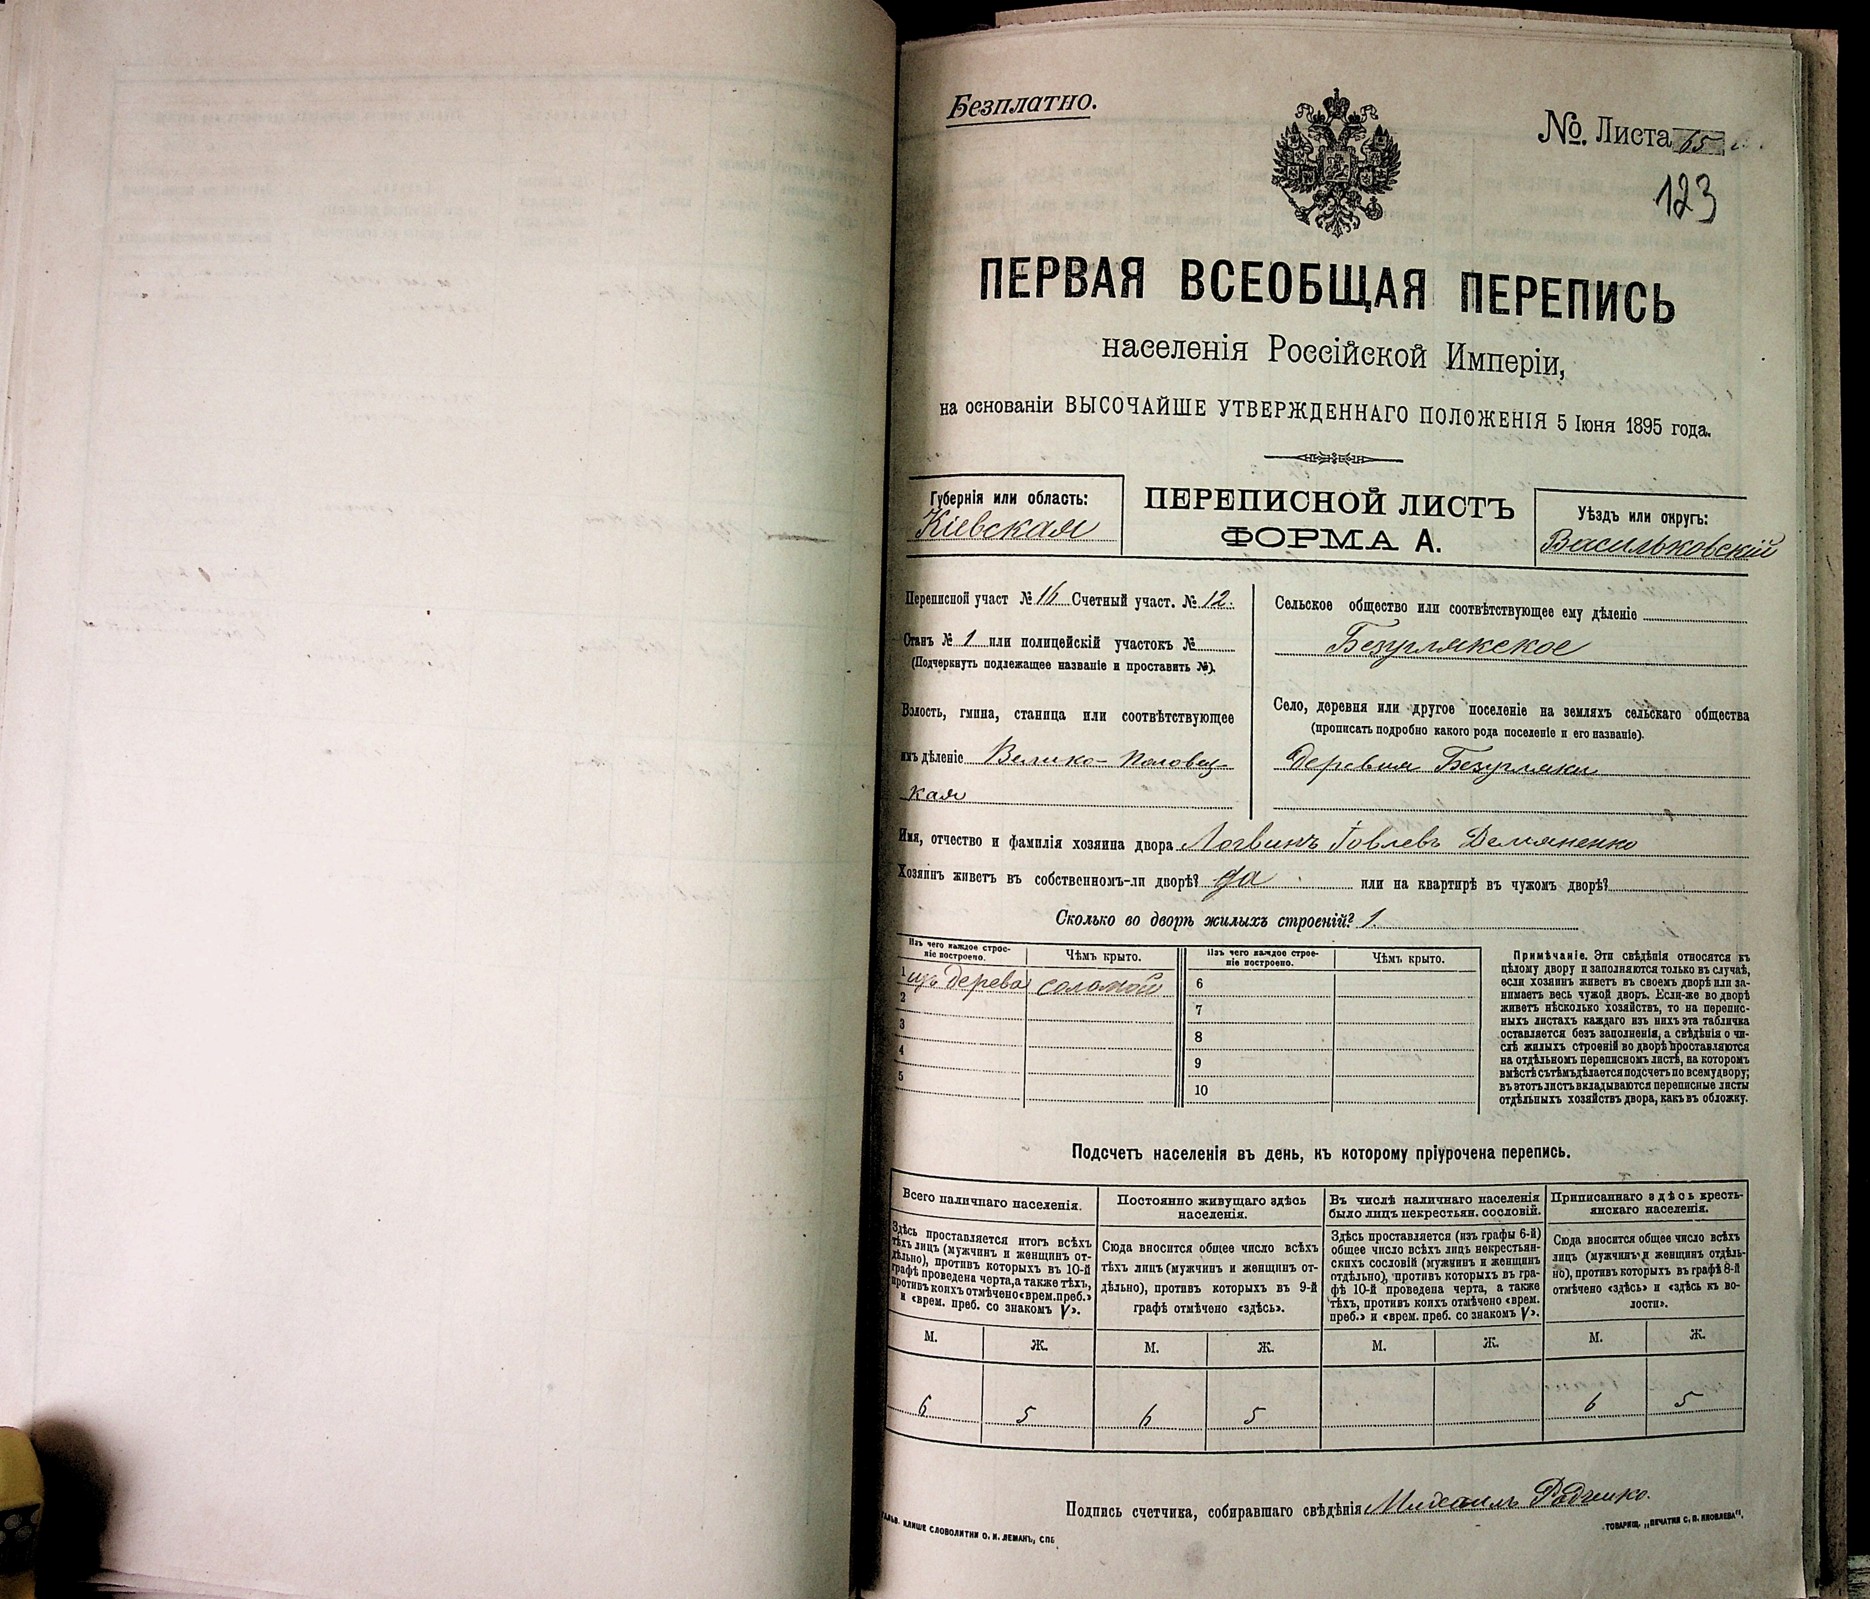 Безплатно.
№. Листа 65
123
ПЕРВАЯ ВСЕОБЩАЯ ПЕРЕПИСЬ
населенія Россійской Имперіи,
на основаніи ВЫСОЧАЙШЕ УТВЕРЖДЕННАГО ПОЛОЖЕНІЯ 5 Іюня 1895 года.
Губернія или область:
Кіевская
ПЕРЕПИСНОЙ ЛИСТЪ
ФОРМА А.
Уѣздъ или округъ:
Васильковскій
Переписной участ № 16 Счетный участ. № 12.
Станъ № 1 или полицейскій участокъ №
(Подчеркнуть подлежащее названіе и проставить №).
Волость, гмина, станица или соотвѣтствующее
имъ дѣленіе Велико-Половец-
кая
Сельское общество или соотвѣтствующее ему дѣленіе
Безуглякское
Село, деревня или другое поселеніе на земляхъ сельскаго общества
(прописать подробно какого рода поселеніе и его названіе).
Деревня Безугляки
Имя, отчество и фамилія хозяина двора Логвинъ Іовлевъ Демяненко
Хозяинъ живетъ въ собственномъ-ли дворѣ? да или на квартирѣ въ чужомъ дворѣ?
Сколько во дворѣ жилыхъ строеній? 1.
Изъ чего каждое строе-
ніе построено.
Чѣмъ крыто.
1 изъ дерева соломой
2
3
4
5
Изъ чего каждое строе-
ніе построено.
Чѣмъ крыто.
6
7
8
9
10
Примѣчаніе. Эти свѣдѣнія относятся къ
цѣлому двору и заполняются только въ случаѣ,
если хозяинъ живетъ въ своемъ дворѣ или за-
нимаетъ весь чужой дворъ. Если-же во дворѣ
живетъ нѣсколько хозяйствъ, то на перепис-
ныхъ листахъ каждаго изъ нихъ эта табличка
оставляется безъ заполненія, а свѣдѣнія о чи-
слѣ жилыхъ строеній во дворѣ проставляются
на отдѣльномъ переписномъ листѣ, на которомъ
вмѣстѣ съ тѣмъ дѣлается подсчетъ по всему двору;
въ этотъ листъ вкладываются переписные листы
отдѣльныхъ хозяйствъ двора, какъ въ обложку.
Подсчетъ населенія въ день, къ которому пріурочена перепись.
Всего наличнаго населенія.
Здѣсь проставляется итогъ всѣхъ
тѣхъ лицъ (мужчинъ и женщинъ от-
дѣльно), противъ которыхъ въ 10-й
графѣ проведена черта, а также тѣхъ,
противъ коихъ отмѣчено «врем. преб.»
и «врем. преб. со знакомъ V».
М. Ж.
6 5
Постоянно живущаго здѣсь
населенія.
Сюда вносится общее число всѣхъ
тѣхъ лицъ (мужчинъ и женщинъ от-
дѣльно), противъ которыхъ въ 9-й
графѣ отмѣчено «здѣсь».
М. Ж.
6 5
Въ числѣ наличнаго населенія
было лицъ некрестьян. сословій.
Здѣсь проставляется (изъ графы 6-й)
общее число всѣхъ лицъ некрестьян-
скихъ сословій (мужчинъ и женщинъ
отдѣльно), противъ которыхъ въ гра-
фѣ 10-й проведена черта, а также
тѣхъ, противъ коихъ отмѣчено «врем.
преб.» и «врем. преб. со знакомъ V».
М. Ж.
Приписаннаго здѣсь кресть-
янскаго населенія.
Сюда вносится общее число всѣхъ
лицъ (мужчинъ и женщинъ отдѣль-
но), противъ которыхъ въ графѣ 8-й
отмѣчено «здѣсь» и «здѣсь къ во-
лости».
М. Ж.
6 5
Подпись счетчика, собиравшаго свѣдѣнія Михаилъ Радченко.
КЛИШЕ СЛОВОЛИТНИ О. И. ЛЕМАНЪ, СПБ
ТОВАРИЩ. „ПЕЧАТНЯ С. П. ЯКОВЛЕВА".